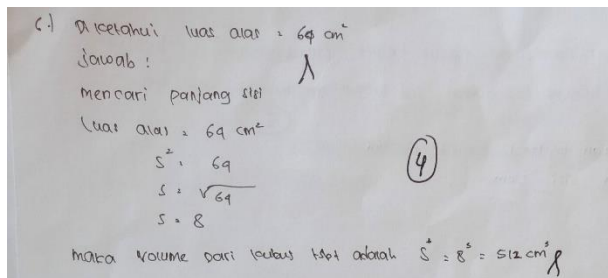 6.) Diketahui luas alas = 64 cm²
Jawab :
mencari panjang sisi
Luas alas = 64 cm²
s² = 64
s = √64
s = 8
④
maka volume dari kubus tsbt adalah s³ = 8³ = 512 cm³